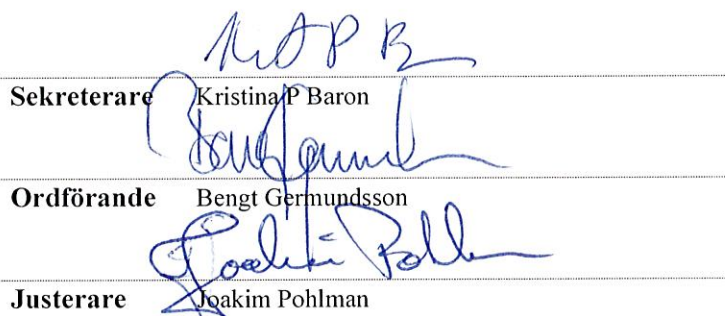 Sekreterare Kristina P Baron
Ordförande Bengt Germundsson
Joakim Pohlman
Justerare Joakim Pohlman